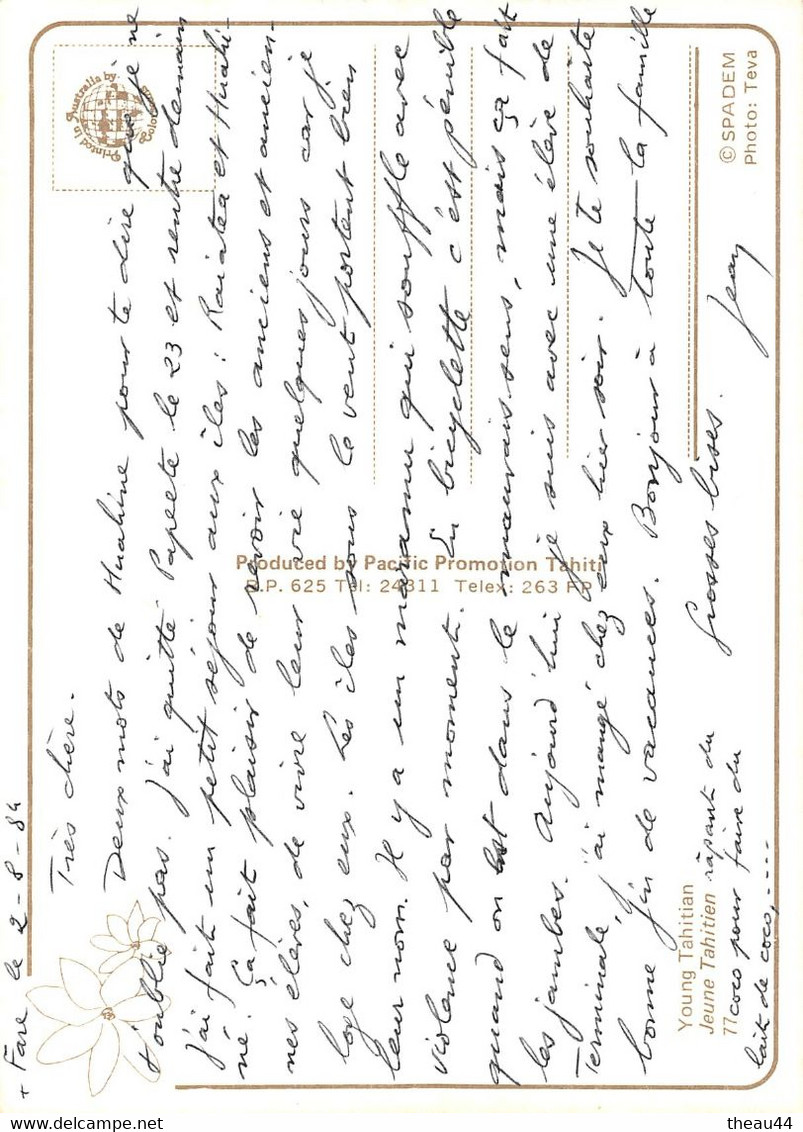 + Fare le 2-8-84
Très chère.
Deux mots de Huahine pour te dire que je ne
t'oublie pas. J'ai quitté Papeete le 23 et rentre demain
J'ai fait un petit séjour aux îles : Raiatea et Huahi-
né. Ça fait plaisir de revoir les anciens et ancien-
nes élèves, de vivre leur vie quelques jours car je
loge chez eux. Les îles sous le vent portent bien
leur nom. Il y a un maramu qui souffle avec
violence par moments. En bicyclette c'est pénible
quand on est dans le mauvais sens, mais ça fait
les jambes. Aujourd'hui je suis avec une élève de
Terminale, j'ai mangé chez eux hier soir. Je te souhaite
bonne fin de vacances. Bonjour à toute la famille
grosses bises.
Jean
Printed in Australia by
Produced by Pacific Promotion Tahiti
B.P. 625 Tél: 24311 Telex: 263 FP
© SPADEM
Photo: Teva
Young Tahitian
Jeune Tahitien râpant du
77 coco pour faire du
lait de coco,....
theau44